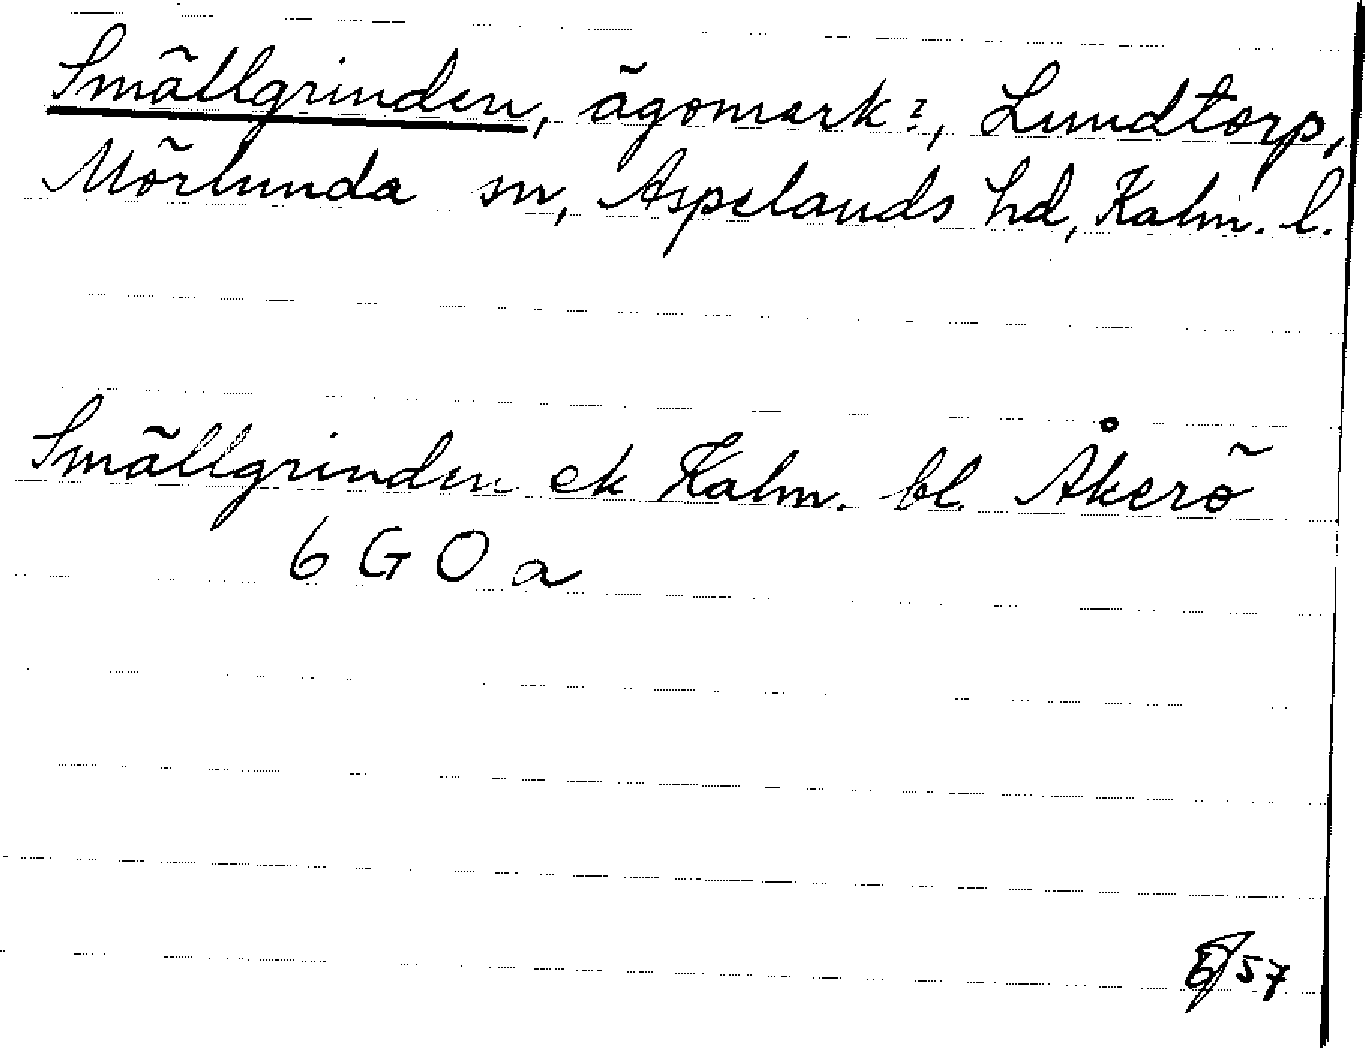 Smällgrinden, ägomark?, Lundtorp,
Mörlunda sn, Aspelands hd, Kalm. l.
Smällgrinden ek Kalm. bl. Åkerö
6 G O a
57